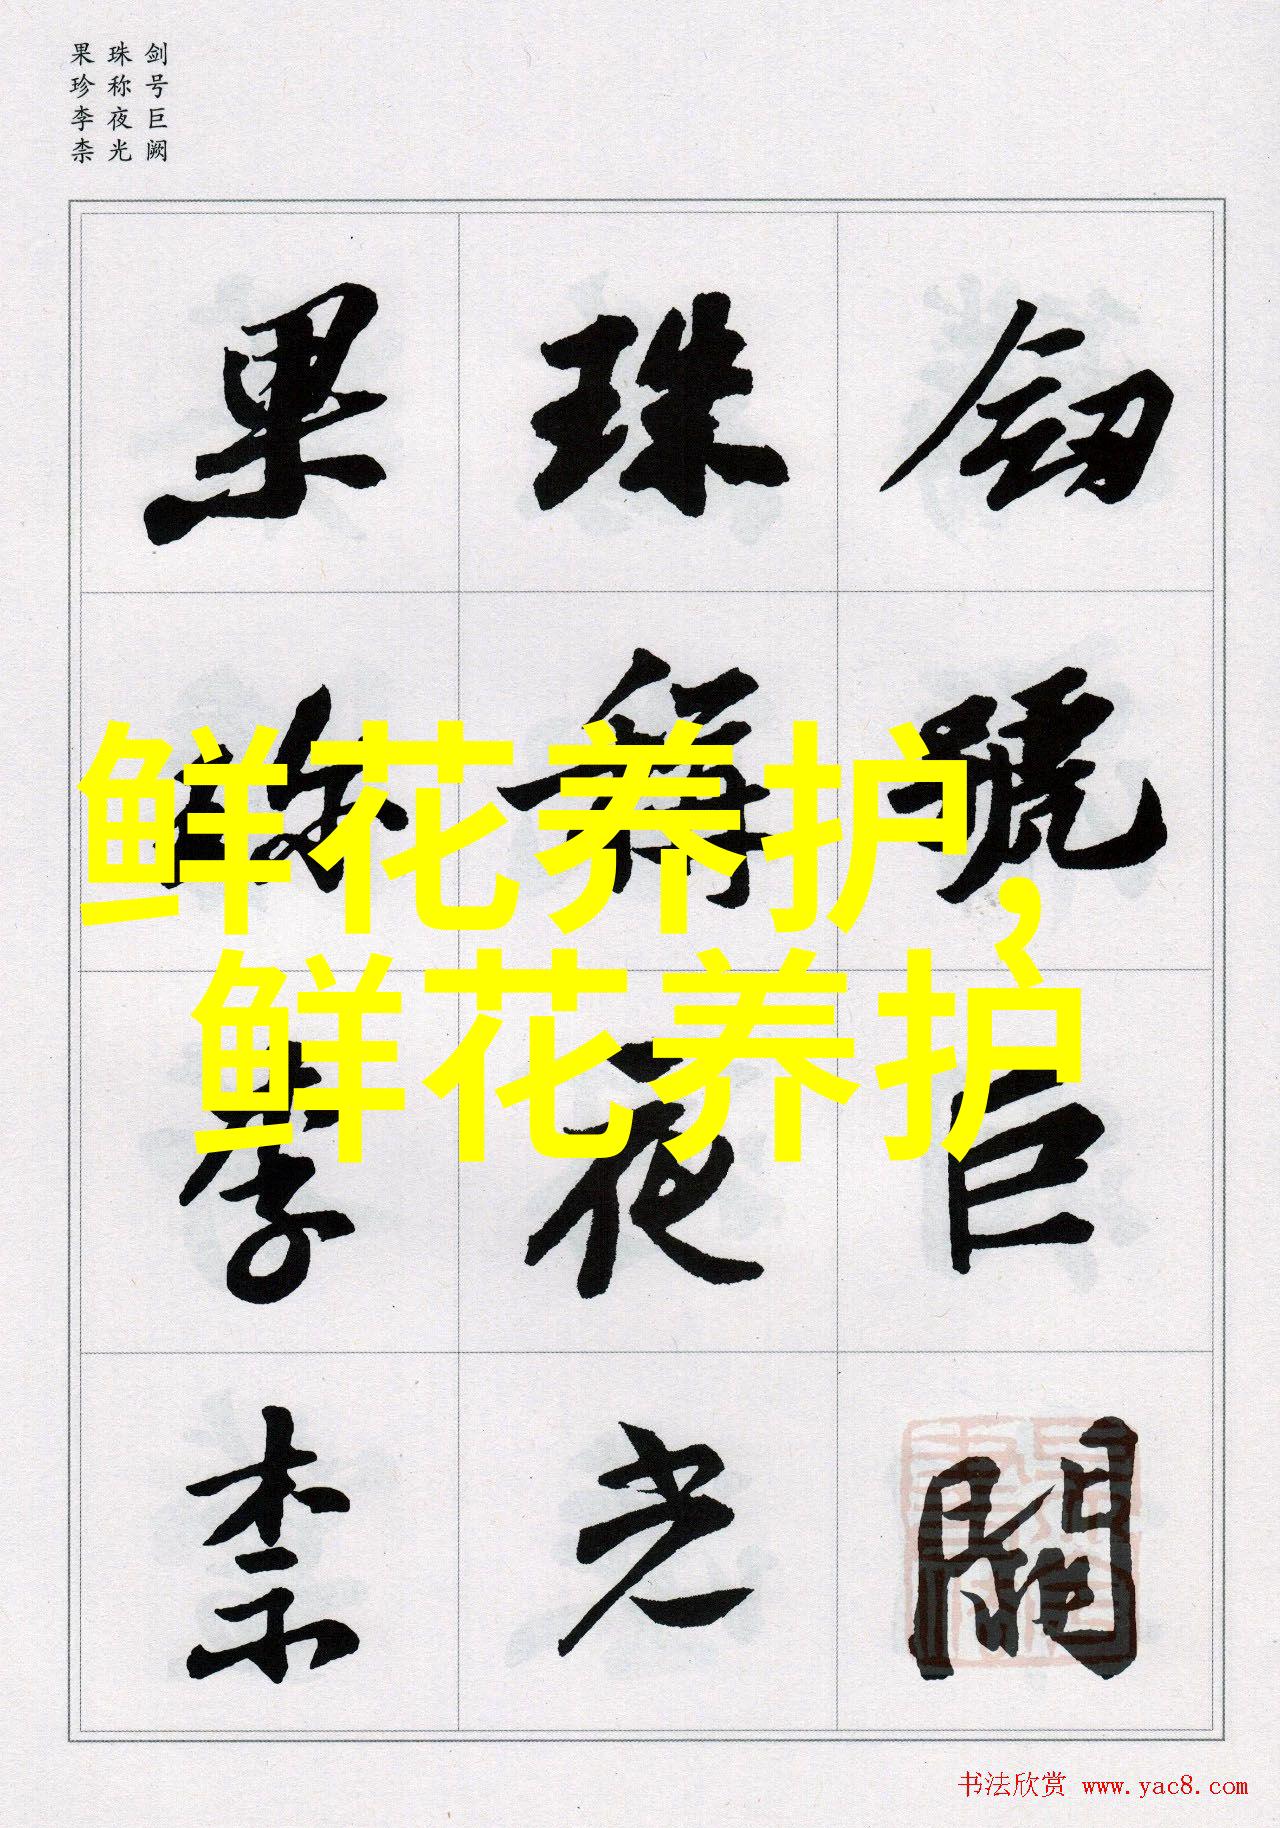 剑号巨阙
珠称夜光
果珍李柰
劒號巨闕
珠稱夜光
果珍李柰
鲜花养护，
鲜花养护
书法欣赏 www.yac8.com